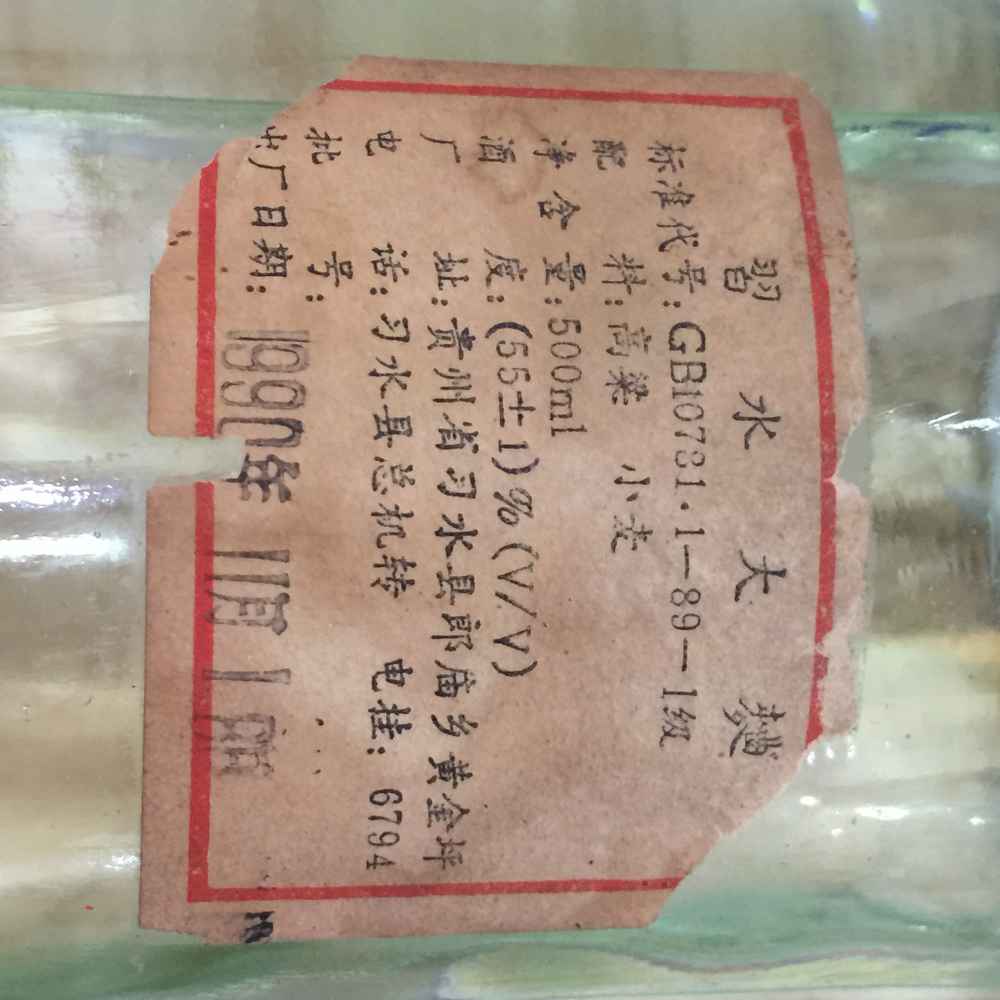 習水大麯
标准代号：GB10781·1—89—1级
配料：高粱 小麦
净含量：500ml
酒度：(55±1)%(V/V)
厂址：贵州省习水县郎庙乡黄金坪
电话：习水县总机转 电挂：6794
批号：
出厂日期：1990年11月1日